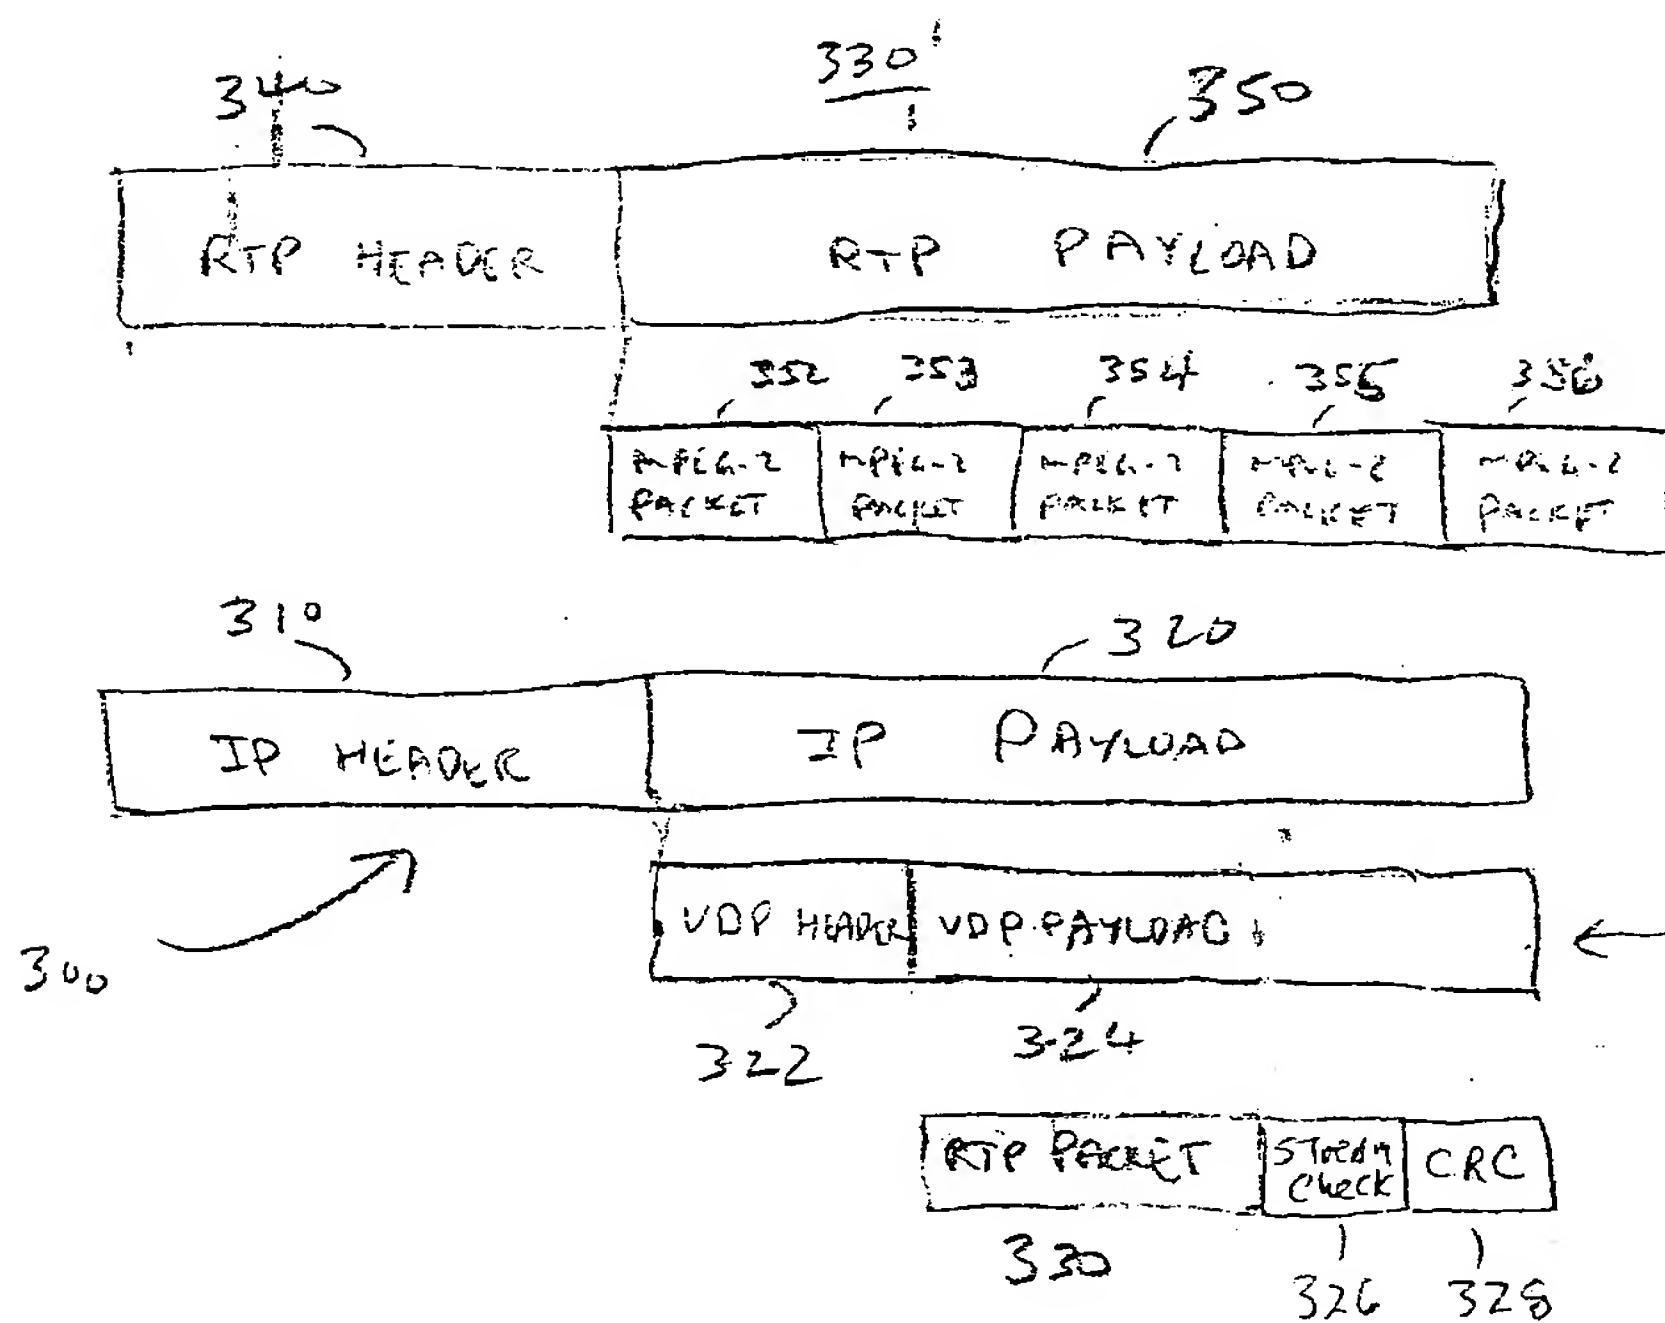 330
340
350
RTP HEADER
RTP PAYLOAD
352
353
354
355
356
MPEG-2 PACKET
MPEG-2 PACKET
MPEG-2 PACKET
MPEG-2 PACKET
MPEG-2 PACKET
310
320
IP HEADER
IP PAYLOAD
300
UDP HEADER
UDP PAYLOAD
322
324
RTP PACKET
Stream Check
CRC
330
326
328